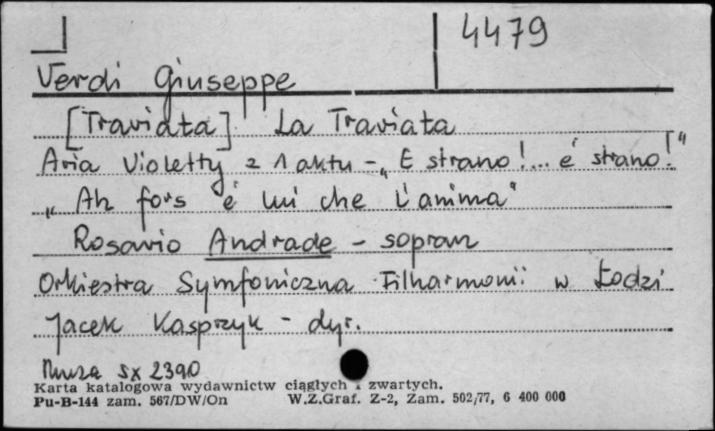 4479
Verdi Giuseppe
[Traviata] La Traviata
Aria Violetty z 1 aktu - „E strano!... é strano!"
„Ah fors é lui che l'anima"
Rosario Andrade - sopran
Orkiestra Symfoniczna Filharmonii w Łodzi
Jacek Kasprzyk - dyr.
Muza SX 2390
Karta katalogowa wydawnictw ciągłych i zwartych.
Pu-B-144 zam. 567/DW/On W.Z.Graf. Z-2, Zam. 502/77, 6 400 000